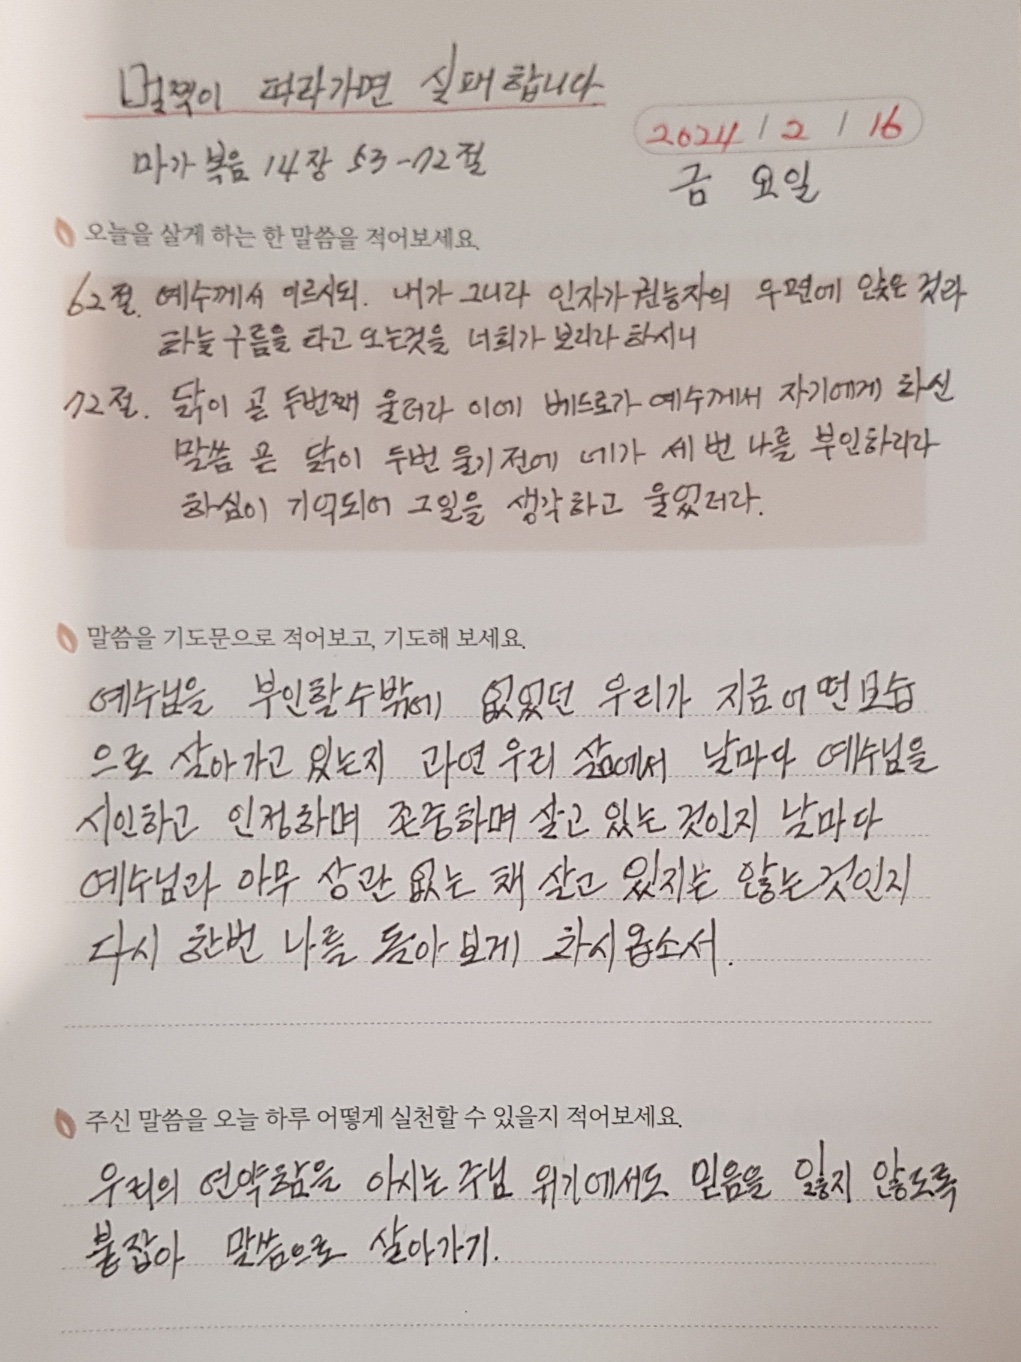 멀찍이 따라가면 실패합니다
2024 / 2 / 16
마가복음 14장 53-72절
금 요일
오늘을 살게 하는 한 말씀을 적어보세요.
62절. 예수께서 이르시되. 내가 그니라 인자가 권능자의 우편에 앉은 것과
하늘 구름을 타고 오는것을 너희가 보리라 하시니
72절. 닭이 곧 두번째 울더라 이에 베드로가 예수께서 자기에게 하신
말씀 곧 닭이 두번 울기 전에 네가 세 번 나를 부인하리라
하심이 기억되어 그일을 생각하고 울었더라.
말씀을 기도문으로 적어보고, 기도해 보세요.
예수님을 부인할수밖에 없었던 우리가 지금 어떤모습
으로 살아가고 있는지 과연 우리 삶에서 날마다 예수님을
시인하고 인정하며 존중하며 살고 있는 것인지 날마다
예수님과 아무 상관 없는 채 살고 있지는 않는 것인지
다시 한번 나를 돌아 보게 하시옵소서.
주신 말씀을 오늘 하루 어떻게 실천할 수 있을지 적어보세요.
우리의 연약함을 아시는 주님 위기에서도 믿음을 잃지 않도록
붙잡아 말씀으로 살아가기.